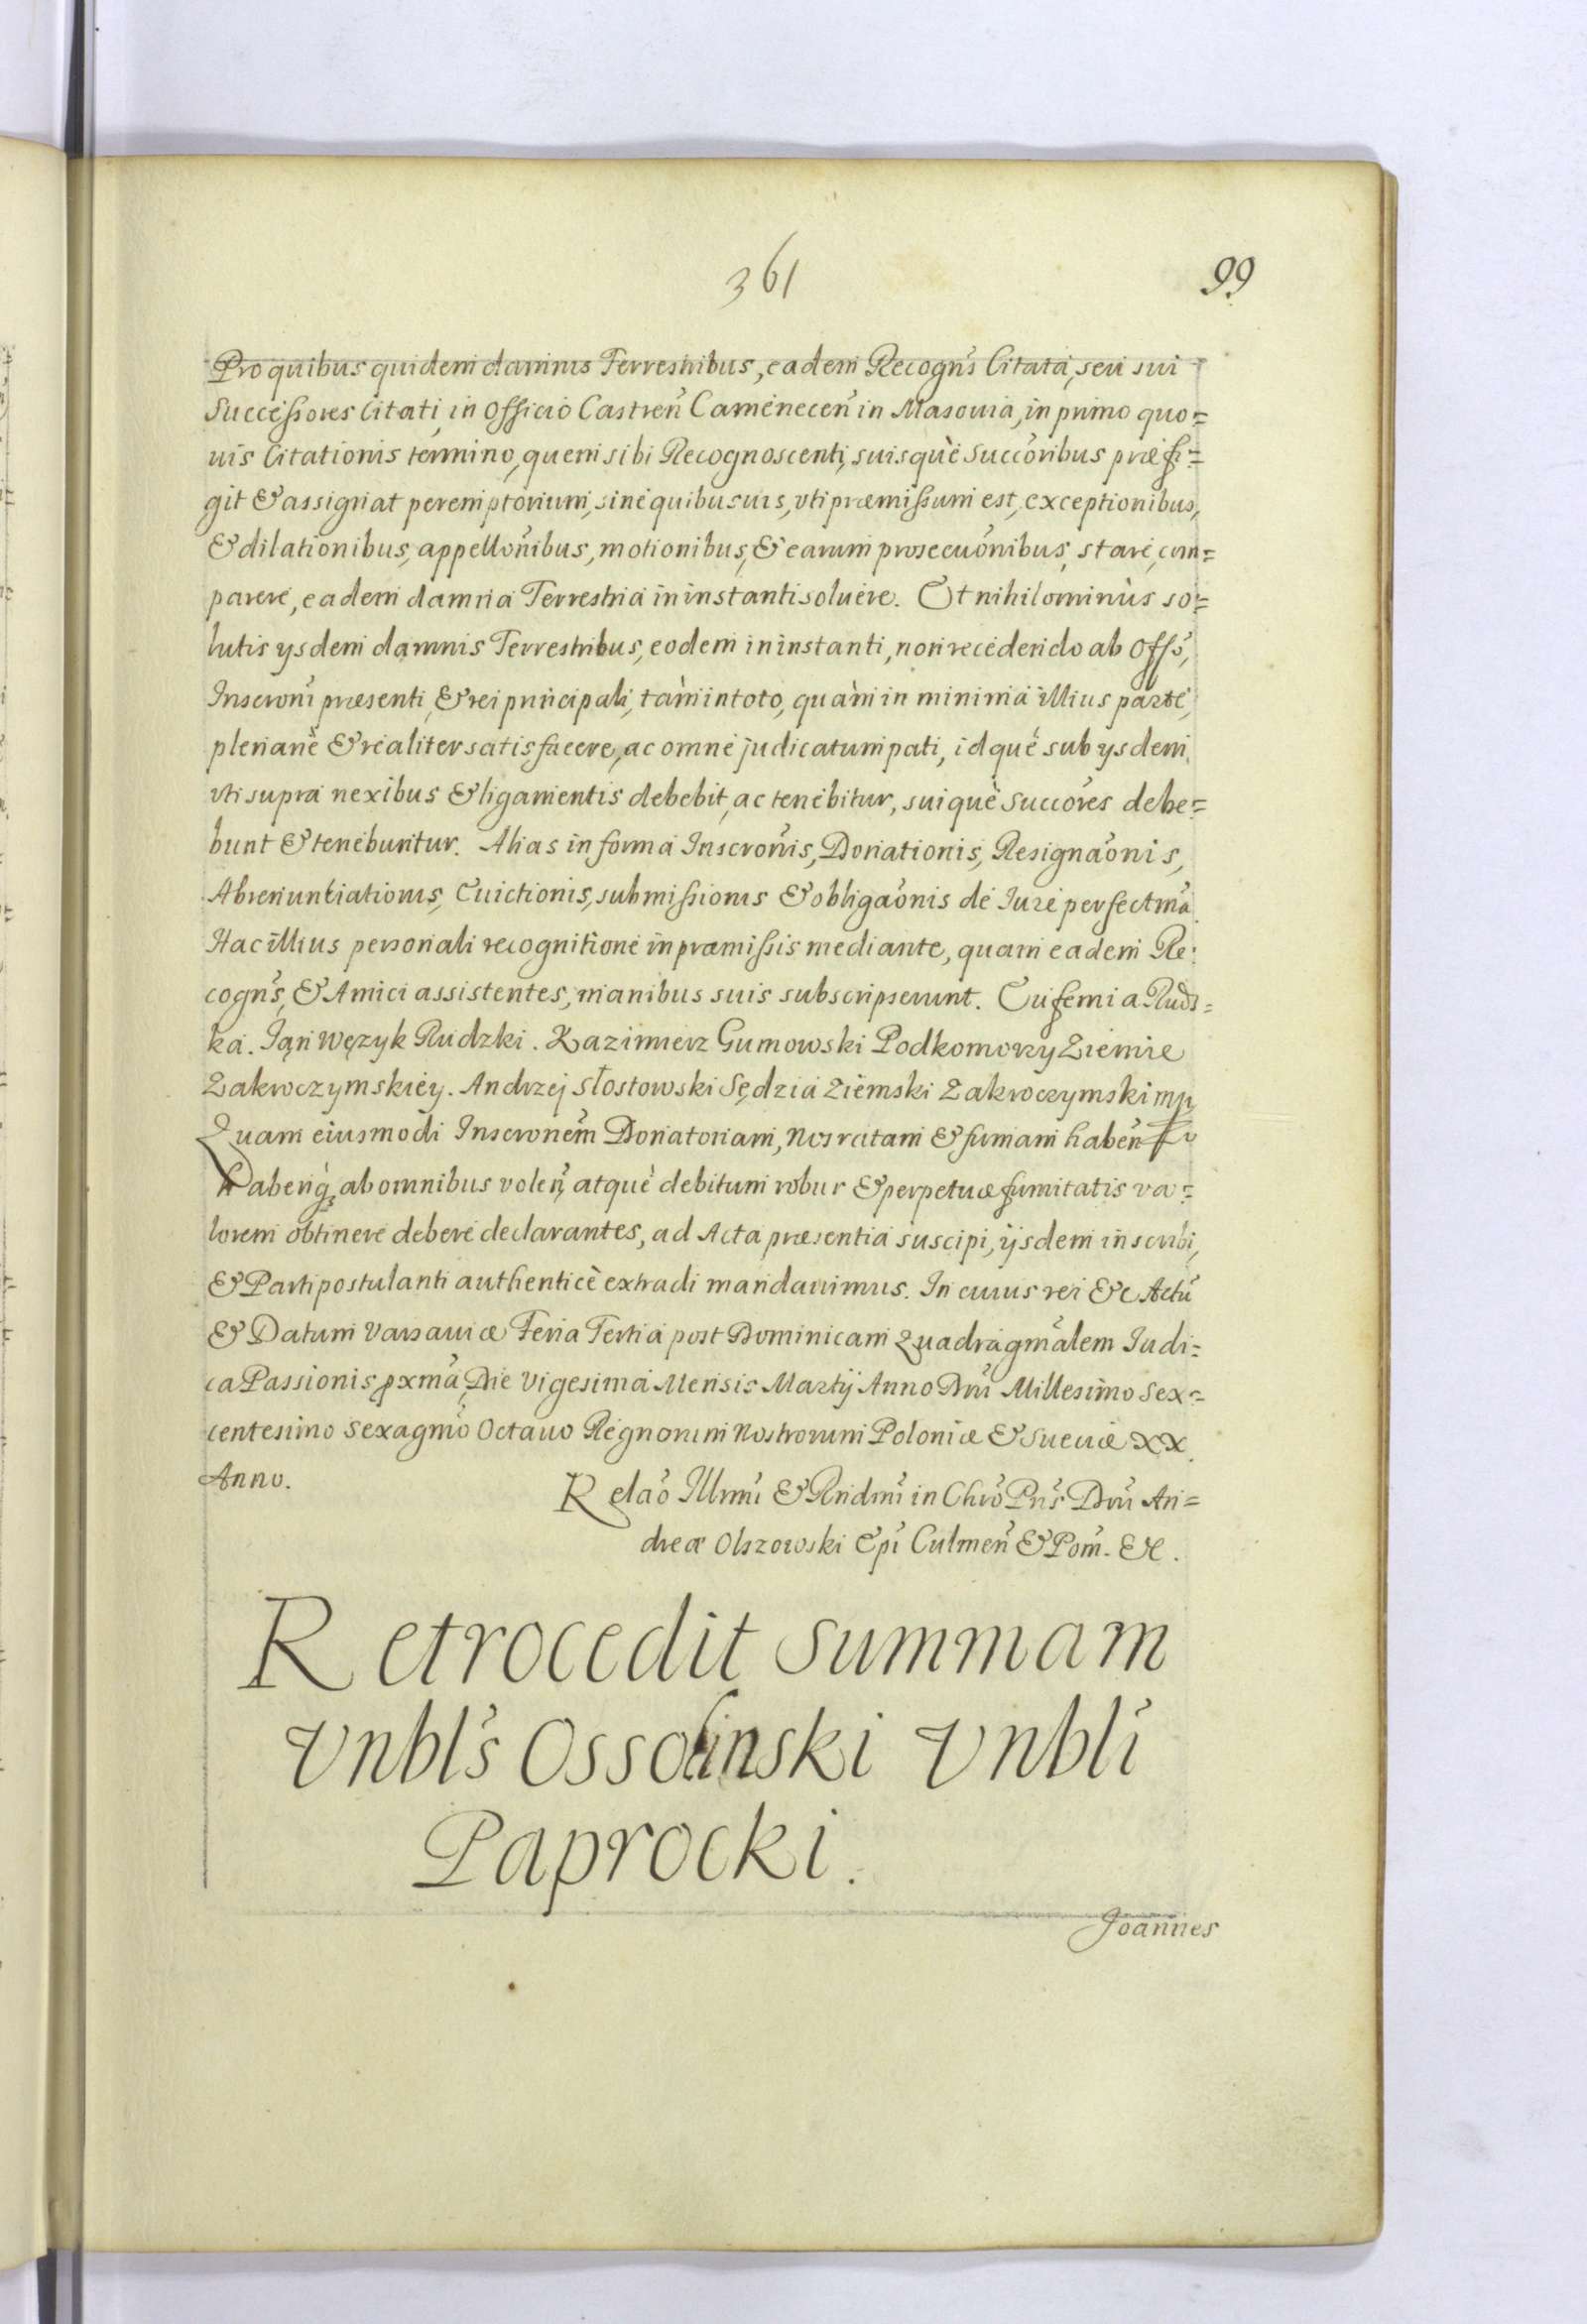 361
99
Pro quibus quidem damnis Terrestribus, eadem Recogñs Citata, seu sui
Successores Citati, in Officio Castreñ Cameneceñ in Masouia, in primo quo=
uis Citationis termino, quem sibi Recognoscenti, suisquè Succõribus præfi=
git & assignat peremptorium, sine quibusuis, vti præmissum est, exceptionibus,
& dilationibus, appellõnibus, motionibus, & earum prosecuõnibus, stare, com=
parere, eadem damna Terrestria in instanti soluere. Et nihilominùs so=
lutis ysdem damnis Terrestribus, eodem in instanti, non recedendo ab Offõ,
Inscroñi præsenti, & rei principali, tàm in toto, quàm in minima illius parte,
plenariè & realiter satisfacere, ac omne judicatum pati, idquè sub ysdem
vti supra nexibus & ligamentis debebit, ac tenebitur, suiquè Succõres debe=
bunt & tenebuntur. Alias in forma Inscroñis, Donationis, Resignaõnis,
Abrenuntiationis, Euictionis, submissionis & obligaõnis de Iure perfectma.
Hac illius personali recognitione in præmissis mediante, quam eadem Re=
cogñs, & Amici assistentes, manibus suis subscripserunt. Eufemia Rudz=
ka. Ian Wężyk Rudzki. Kazimierz Gumowski Podkomorzy Ziemie
Zakroczymskiey. Andrzej Słostowski Sędzia Ziemski Zakroczymski mp
Quam eiusmodi Inscronem̃ Donatoriam, Nos ratam & firmam habeñ
Haberiq; ab omnibus voleñ, atquè debitum robur & perpetuæ firmitatis va=
lorem obtinere debere declarantes, ad Acta præsentia suscipi, ijsdem inscribi,
& Parti postulanti authenticè extradi mandauimus. In cuius rei &c Actũ
& Datum Varsauiæ Feria Tertia post Dominicam Quadragm̃alem Iudi=
ca Passionis pxmã, Die Vigesima Mensis Martij Anno Dñi Millesimo Sex=
centesimo Sexagmõ Octauo Regnorum Nostrorum Poloniæ & Sueciæ XX.
Anno.
Relaõ Illmĩ & Rndmĩ in Chrõ Pris̃ Dñi An=
dreæ Olszowski Epĩ Culmeñ & Pom̃. &c.
Retrocedit Summam
Vnbl̃s Ossolinski Vnbl̃i
Paprocki.
Joannes